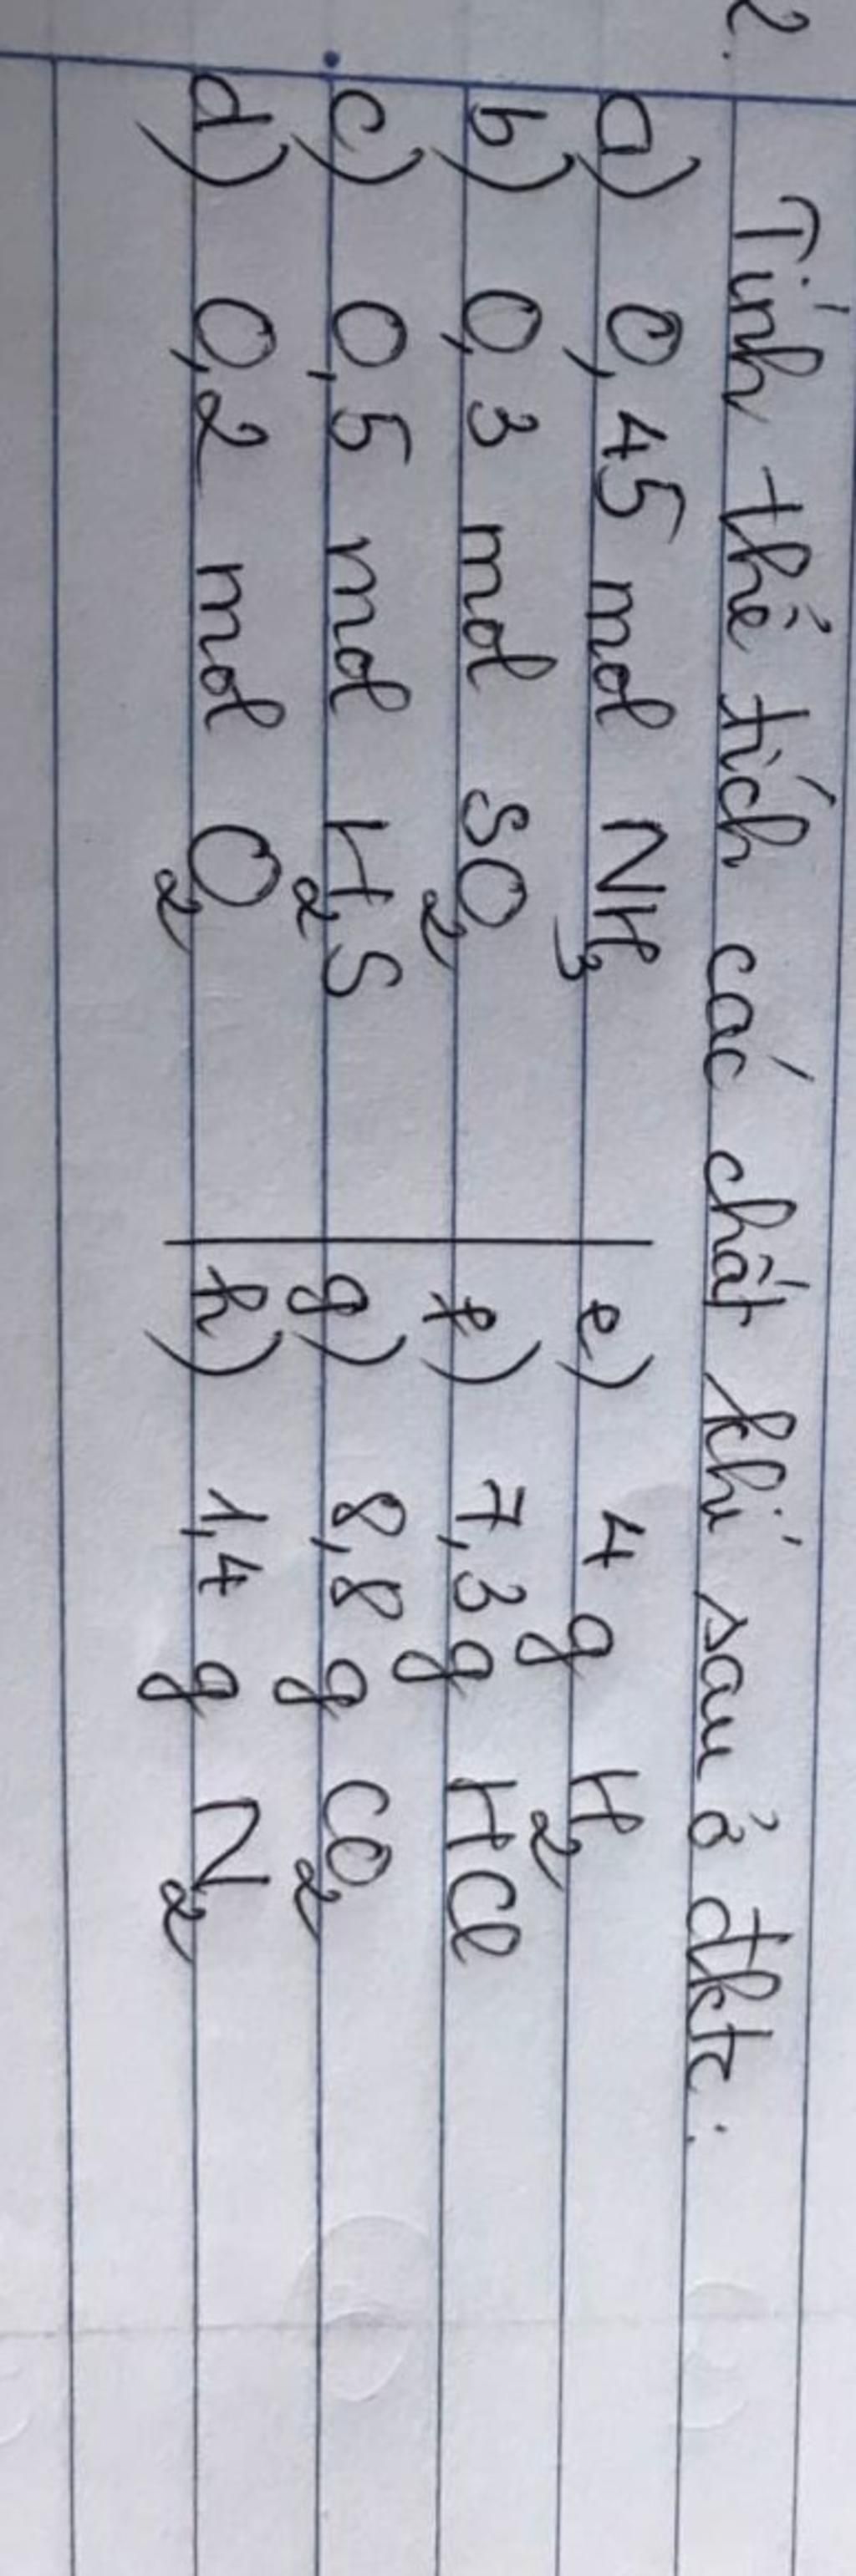 2. Tính thể tích các chất khí sau ở đktc:
a) 0,45 mol NH₃ | e) 4 g H₂
b) 0,3 mol SO₂ | f) 7,3 g HCl
c) 0,5 mol H₂S | g) 8,8 g CO₂
d) 0,2 mol O₂ | h) 1,4 g N₂